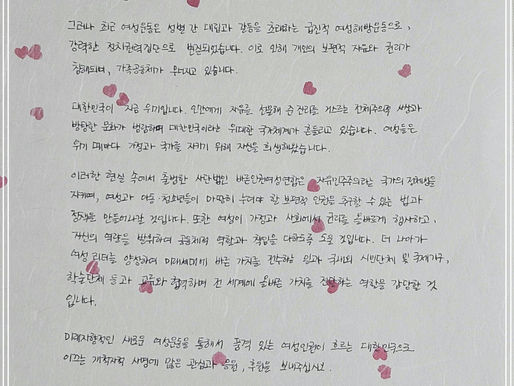 그러나 최근 여성운동은 성별 간 대립과 갈등을 초래하는 급진적 여성해방운동으로,
강력한 정치권력집단으로 변질되었습니다. 이로 인해 개인의 보편적 자유와 권리가
침해되며, 가족공동체가 무너지고 있습니다.
대한민국이 지금 위기입니다. 인간에게 자유를 선물해 준 진리를 거스르는 전체주의 사상과
방탕한 문화가 범람하며 대한민국이라는 위대한 국가체계가 흔들리고 있습니다. 여성들은
위기 때마다 가정과 국가를 지키기 위해 자신을 희생해왔습니다.
이러한 현실 속에서 출범한 사단법인 바른인권여성연합은 자유민주주의라는 국가의 정체성을
지키며, 여성과 아동 청소년들이 마땅히 누려야 할 보편적 인권을 추구할 수 있는 법과
정책을 만들어나갈 것입니다. 또한 여성이 가정과 사회에서 권리를 올바르게 행사하고,
자신의 역량을 발휘하여 공동체적 역할과 책임을 다하도록 도울 것입니다. 더 나아가
여성 리더를 양성하여 미래세대에 바른 가치를 전수하는 일과 국내외 시민단체 및 국제기구,
학술단체 등과 교류와 협력하며 전 세계에 올바른 가치를 전달하는 역할을 감당할 것
입니다.
미래지향적인 새로운 여성운동을 통해서 품격 있는 여성인권이 흐르는 대한민국으로
이끄는 개척자적 사명에 많은 관심과 응원, 후원을 보내주십시오.